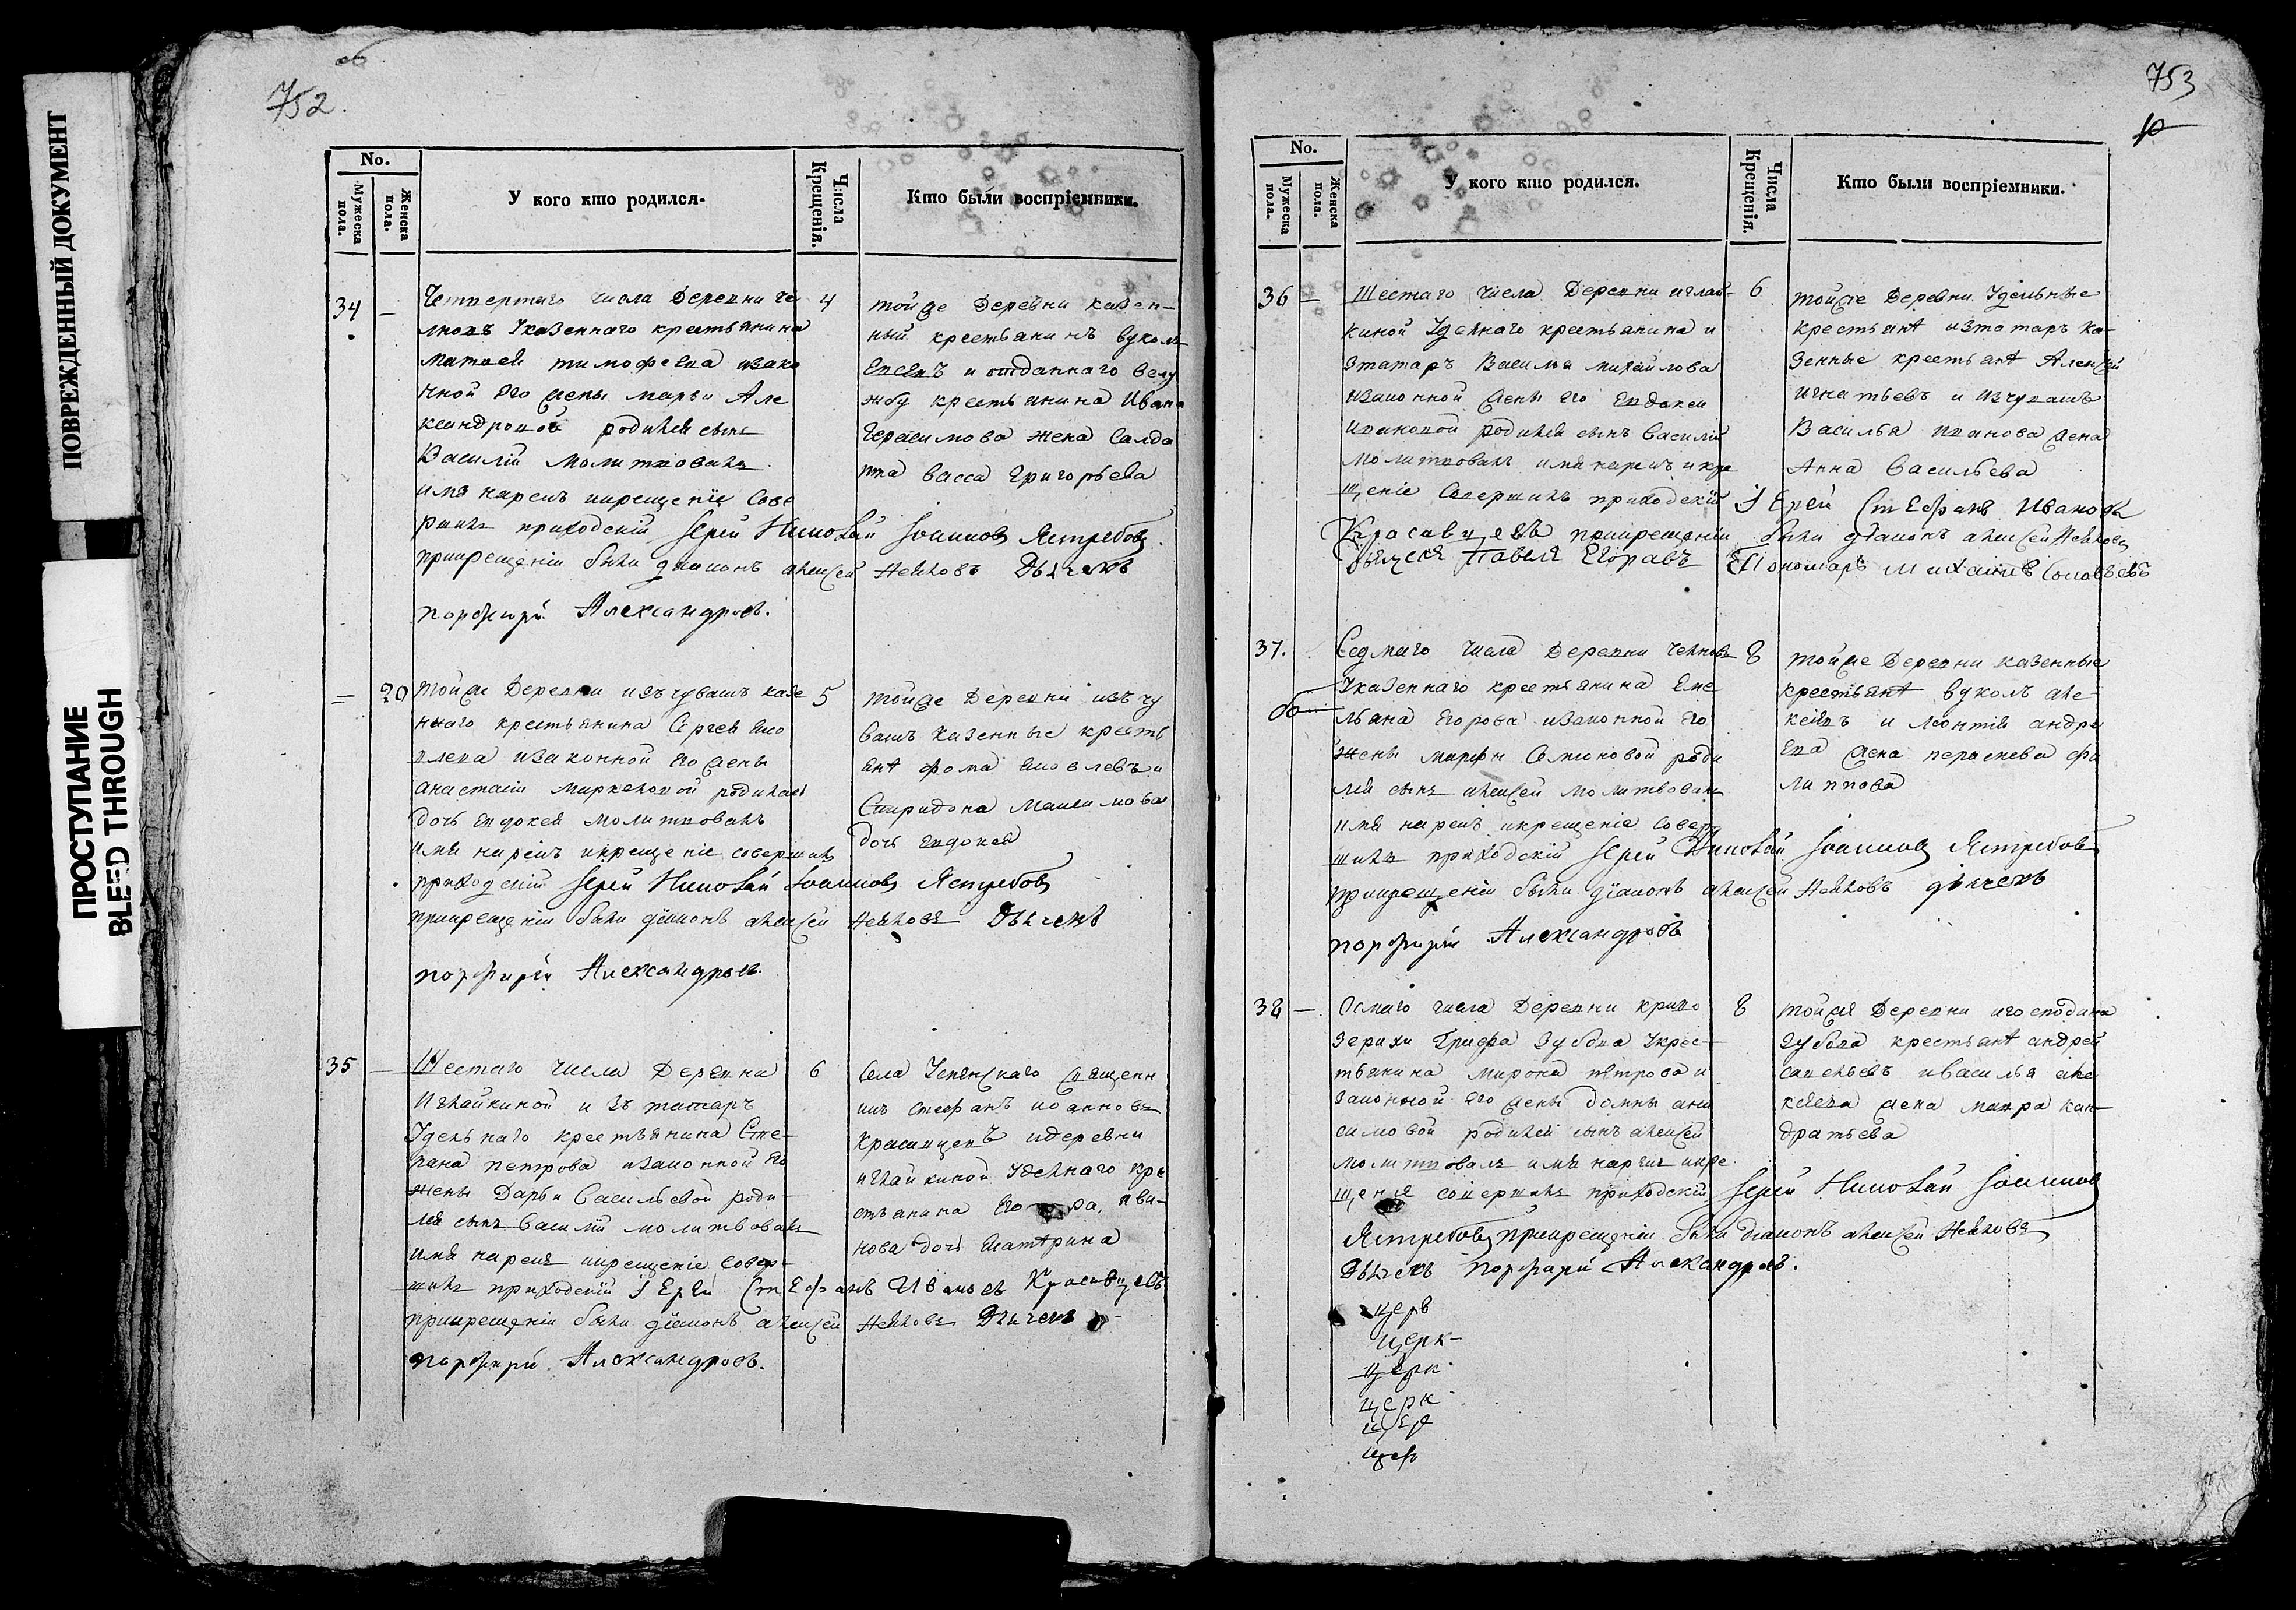 ПОВРЕЖДЕННЫЙ ДОКУМЕНТ
ПРОСТУПАНИЕ
BLEED THROUGH
об
752.
No.
Мужеска пола.
Женска пола.
У кого кто родился.
Числа Крещенія.
Кто были воспріемники.
34 —
Четвертаго числа Деревни че
лновъ Указеннаго крестьянина
матвея тимофеева изако
нной Его жены марьи Але
ксандровой родился сынъ
Василій молитвовалъ
имя нарещъ икрещеніе Сове
ршилъ приходскій Іерей Николай Іоанновъ Ястребовъ
прикрещеніи были діаконъ алексей Нейковъ Дьячекъ
порфирій Александровъ.
4
тойже Деревни казен-
ный крестьянинъ вуколъ
Евсевъ и отданнаго велу
жбу крестьянина Ивана
Герасимова жена Салда
тка васса Григорьева
— 20
тойже Деревни изъчувашъ казе
ннаго крестьянина Сергея яко
влева изаконной Его жены
анастасіи маркеловой родилась
дочь Евдокея молитвовалъ
имя нарещъ икрещеніе совершилъ
приходскій Іерей Николай Іоанновъ Ястребовъ
прикрещеніи были діаконъ алексей Нейковъ Дьячекъ
порфирій Александровъ.
5
тойже Деревни изъчу
вашъ казенные кресть
янѣ фома яковлевъ и
Спиридона максимова
дочь Евдокея
35 —
Шестаго числа Деревни
Иглайкиной изъ татаръ
Удельнаго крестьянина Сте-
пана петрова изаконной Его
жены Дарьи Васильевой роди-
лся сынъ Василій молитвовалъ
имя нарещъ икрещеніе Совер-
шилъ приходскій Іерей Стефанъ Ивановъ Красавцевъ
прикрещеніи были діаконъ алексей Нейковъ Дьячекъ
порфирій Александровъ.
6
Села Успенскаго Священн
икъ стефанъ иоанновъ
красавцевъ идеревни
иглайкиной Удельнаго кре
стьянина Его ра, ива-
нова дочь Екатѣрина
753
No.
Мужеска пола.
Женска пола.
У кого кто родился.
Числа Крещенія.
Кто были воспріемники.
36 —
Шестаго числа Деревни иглай-
киной Уделнаго крестьянина и
зтатаръ Василья михайлова
изаконной жены его Евдокеи
ивановой родился сынъ Василій
молитвовалъ имя нарещъ икре
щеніе Совершилъ приходскій Іерей Стефанъ Ивановъ
Красавцевъ прикрещеніи были діаконъ алексей Нейковъ
Дьячекъ Павелъ Егоравъ Пономарь Михаилъ Соловьевъ
6
тойже Деревни Удельные
крестьянѣ изтатаръ ка-
зенные крестьянѣ Алексей
игнатьевъ и изчувашъ
Василья иванова жена
Анна Васильева
37.
Седмаго числа Деревни челновъ
Указеннаго крестьянина Еме-
льяна Егорова изаконной Его
жены марфы Семеновой роди
лся сынъ алексей молитвовалъ
имя нарещъ икрещеніе Совер
шилъ приходскій Іерей Николай Іоанновъ Ястребовъ
прикрещеніи были діаконъ алексей Нейковъ дьячекъ
порфирій Александровъ
8
тойже Деревни казенные
крестьянѣ вуколъ але-
ксеевъ и леонтія андре
ева жена параскева фи
липпова
38 —
Осмаго числа Деревни криво
зерихи Графа ЗубоваУкрес-
тьянина мирона пѣтрова и
законной Его жены домны ани
симовой родился сынъ алексей
молитвовалъ имя нарещъ икре
щеніе совершилъ приходскій Іерей Николай Іоанновъ
Ястребовъ прикрещеніи были діаконъ алексей Нейковъ
Дьячекъ Порфирій Александровъ.
8
тойже Деревни игосподина
Зубова крестьянѣ андрей
савельевъ иВасилья але
ксеева жена мавра кан-
дратьева
церв
церк-
церк
церк
цер
цер